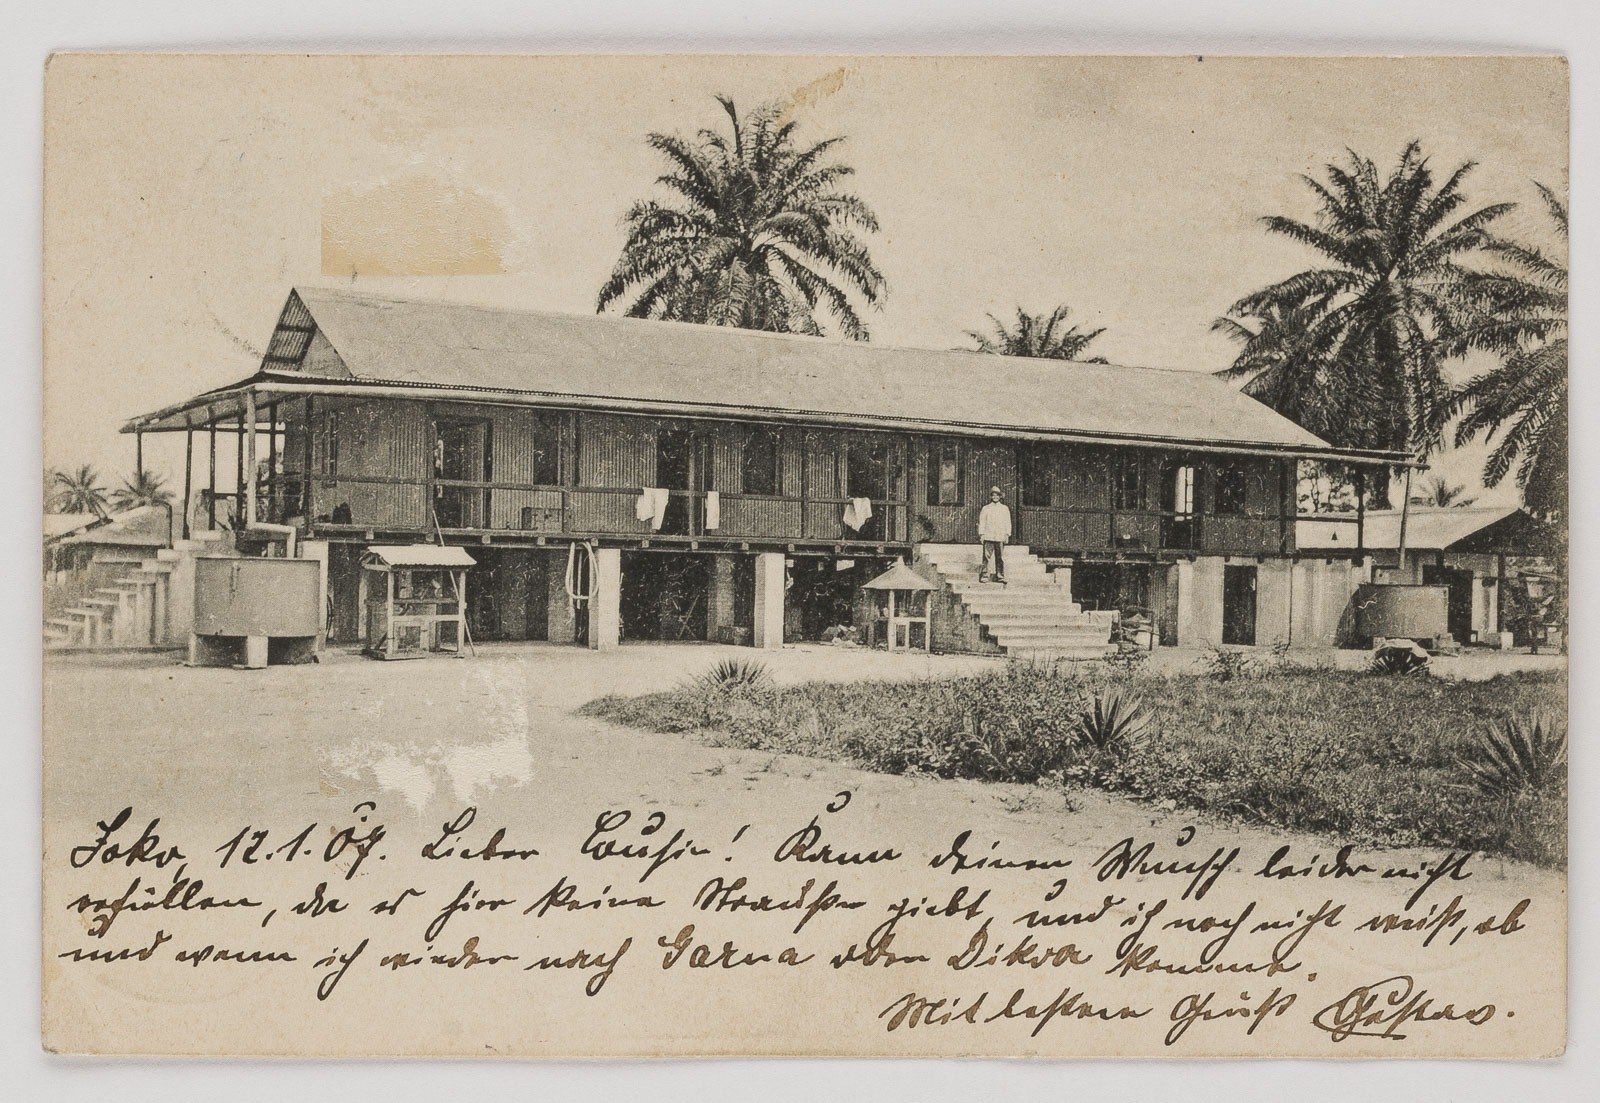 Joko, 12.1.07. Lieber Cousin! Kann deinen Wunsch leider nicht
erfüllen, da es hier keine Strauße giebt, und ich noch nicht weiß, ob
und wann ich wieder nach Garua oder Dikoa komme.
Mit bestem Gruß Gustav.